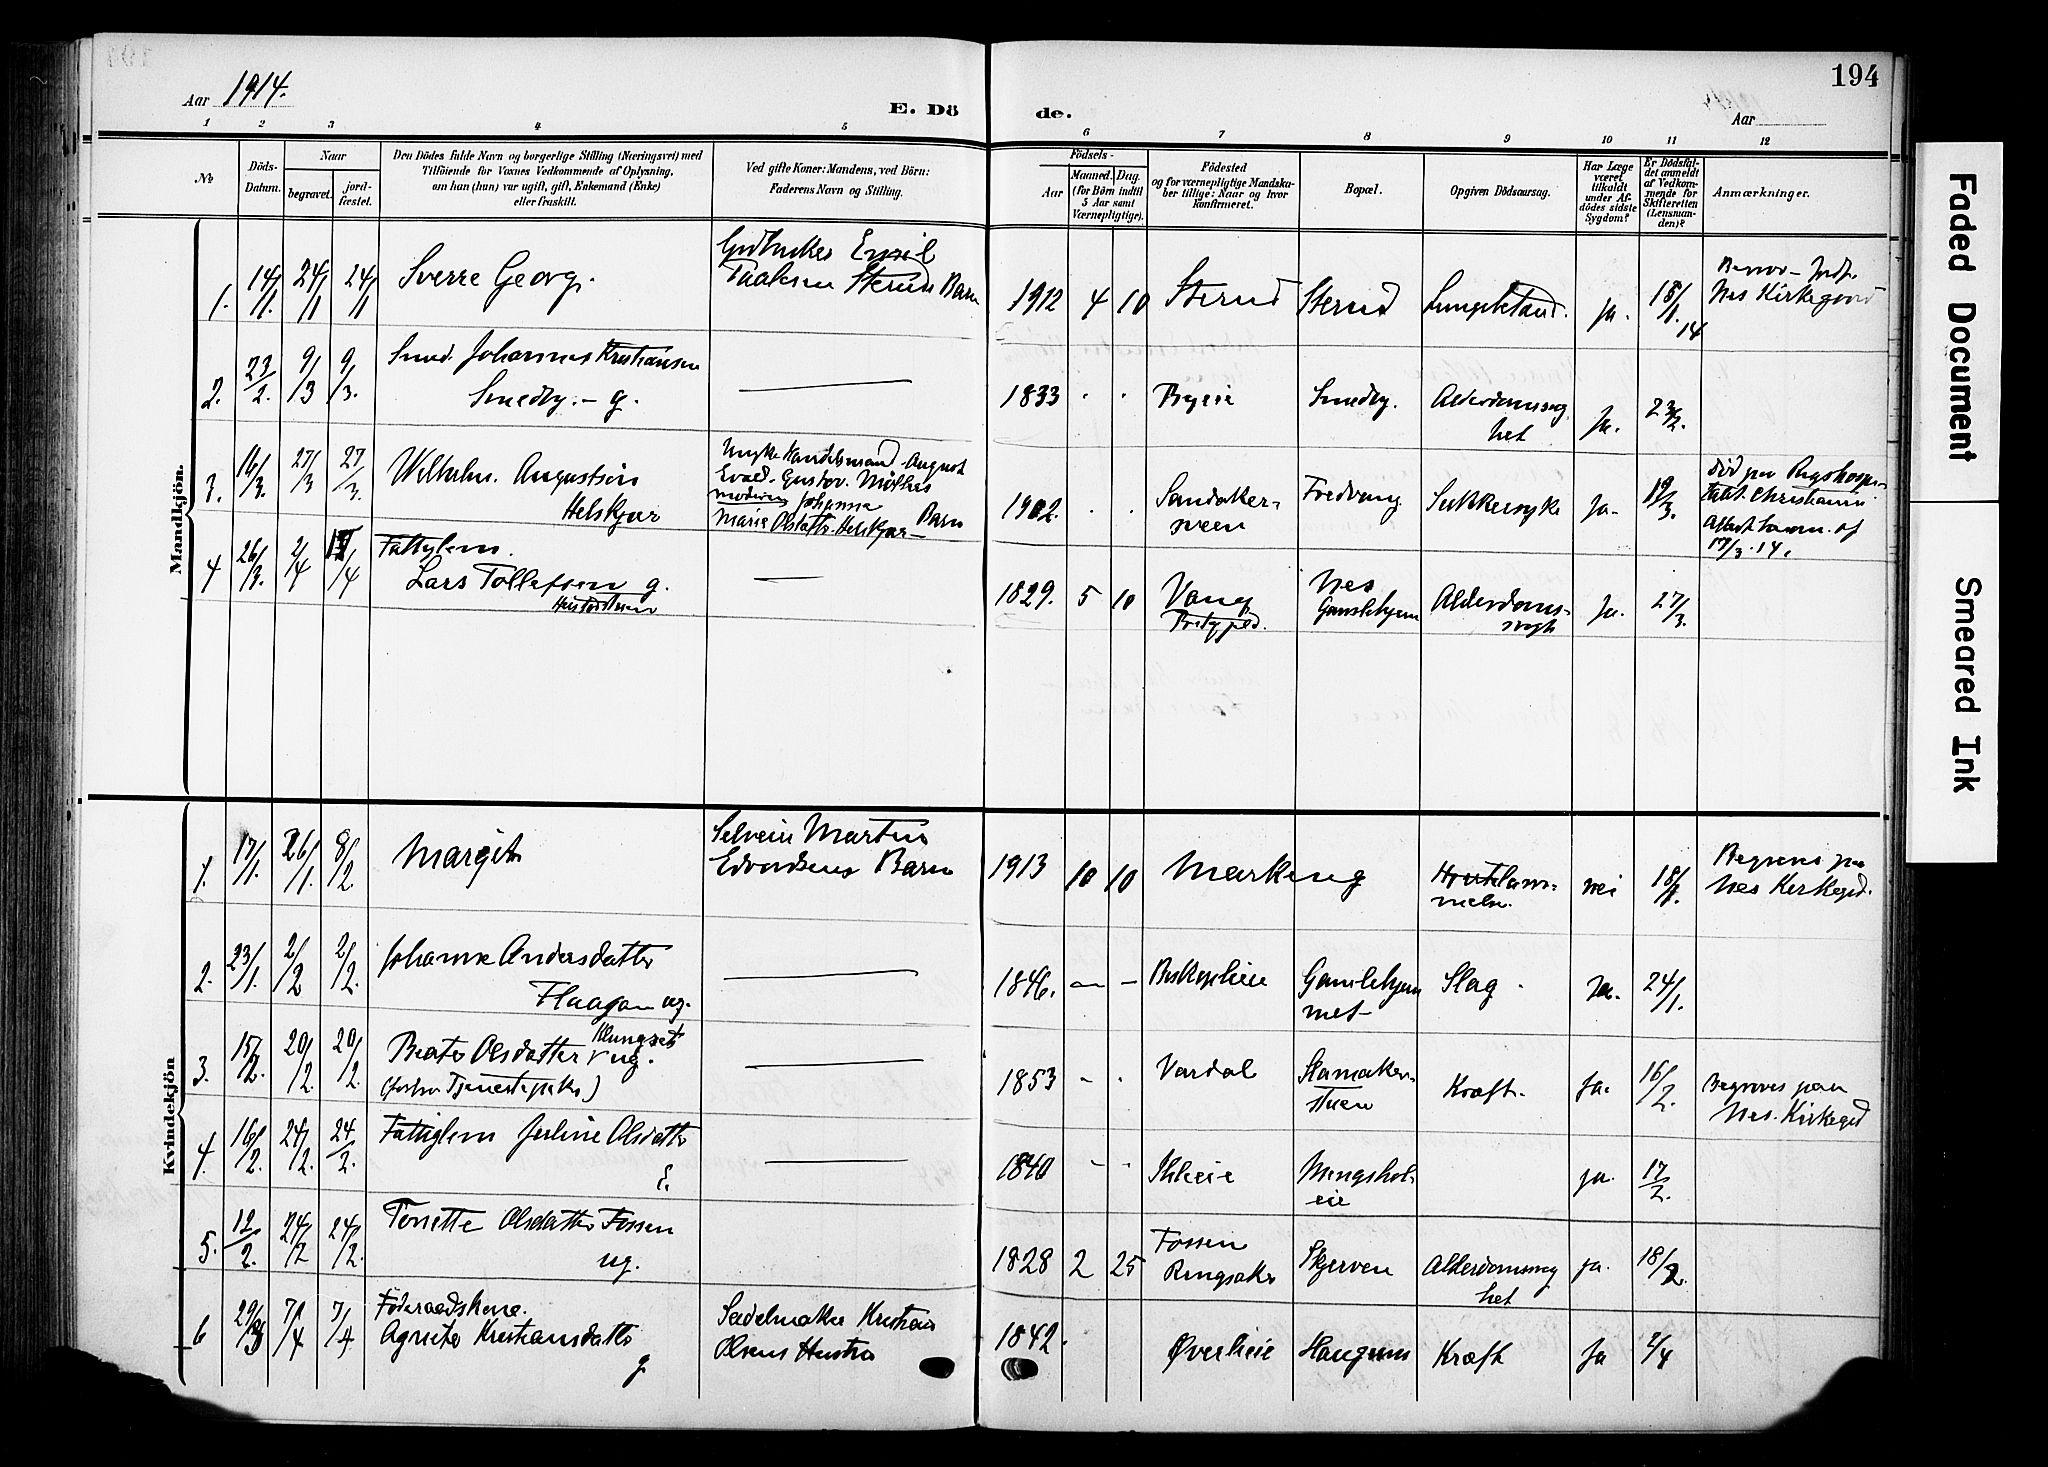 Aar 1914.
E. Döde.
194
Aar
1 2 3 4 5 6 7 8 9 10 11 12
No
Döds-Datum.
Naar
begravet.
jordfæstet.
Den Dödes fulde Navn og borgerlige Stilling (Næringsvei) med
Tilföiende for Voxnes Vedkommende af Oplysning,
om han (hun) var ugift, gift, Enkemand (Enke)
eller fraskilt.
Ved gifte Koner: Mandens, ved Börn:
Faderens Navn og Stilling.
Födsels-
Aar
Maaned. Dag.
(for Börn indtil
5 Aar samt
Værnepligtige).
Födested
og for værnepligtige Mandska-
ber tillige: Naar og hvor
konfirmeret.
Bopæl.
Opgiven Dödsaarsag.
Har Læge
været
tilkaldt
under Af-
dödes sidste
Sygdom?
Er Dödsfal-
det anmeldt
af Vedkom-
mende for
Skifteretten
(Lensman-
den)?
Anmærkninger.
Mandkjön.
1. 14/1. 24/1 24/1 Sverre Georg. Emil Barn 1912 4 10 Sterud Sterud Ja. 15/1. 14 Nes Kirkegaard
2. 23/2. 9/3 9/3. Smed Johannes Kristiansen
Smedby. - g. — 1833 . . Byeie Smedby. Alderdomssvag
het Ja. 23/2.
3. 16/3. 27/3 27/3. Wilhelm Augustsin
Helskjær Handelsmand August
Evald Gustov
moderen Johanna
Marie Olsdatter Helskjær Barn 1902. . . Sandaker-
Fredvang Sukkersyke Ja. 19/3. Død paa Rigshospi-
talet Christiania
af
17/3. 14.
4 26/3. 2/4 /4 Fattiglem.
Lars Tollefsen g. — 1829. 5 10 Vang
Nes
Gamlehjem Alderdoms-
svagh Ja. 27/3.
Kvindekjön
1. 17/1. 26/1. 8/2. Margit Selveier Martin
Edvardsens Barn 1913 10 10 Markeng nei 18/1. Begraves paa
Nes Kirkegd.
2. 23/1. 2/2 2/2. Johanne Andersdatter
ug. — 1846. — — Biskoplieie Gamlehjem
met Slag. Ja. 24/1.
3. 15/2. 20/2. 20/2. Beate Olsdatter ug.
— 1853 - . Vardal Kræft. Ja. 16/2. Begraves paa
Nes. Kirkegd
4. 16/2. 24/2. 24/2. Fattiglem Olsdatter
E. — 1840 - - Ihleeie ja. 17/2.
5. 12/2. 24/2 24/2. Olsdatter Fossen
ug. 1828 2 25 Fossen
Ringsaker Skjerven Alderdomssvag
het ja. 18/2.
6 29/3 7/4 7/4 Føderaadskone.
Agnete Kristiansdatter
g Sadelmaker Kristian
Olsens Hustru 1842. Øverlieie Haugum Kræft Ja 2/4
Faded Document
Smeared Ink